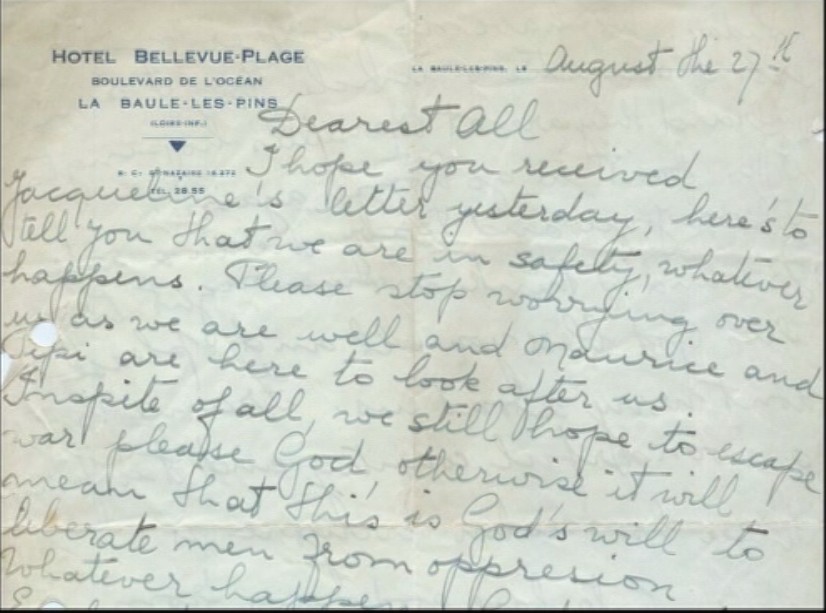 HOTEL BELLEVUE-PLAGE
BOULEVARD DE L'OCÉAN
LA BAULE-LES-PINS
(LOIRE-INF.)
LA BAULE-LES-PINS, LE August the 27th
Dearest All
I hope you received
R. C. ST NAZAIRE
TÉL. 28.55
Jacqueline's letter yesterday, here's to
tell you that we are in safety, whatever
happens. Please stop worrying over
us as we are well and Maurice and
Pipi are here to look after us.
Inspite of all, we still hope to escape
war please God, otherwise it will
mean that this is God's will to
liberate men from oppresion
Whatever happens